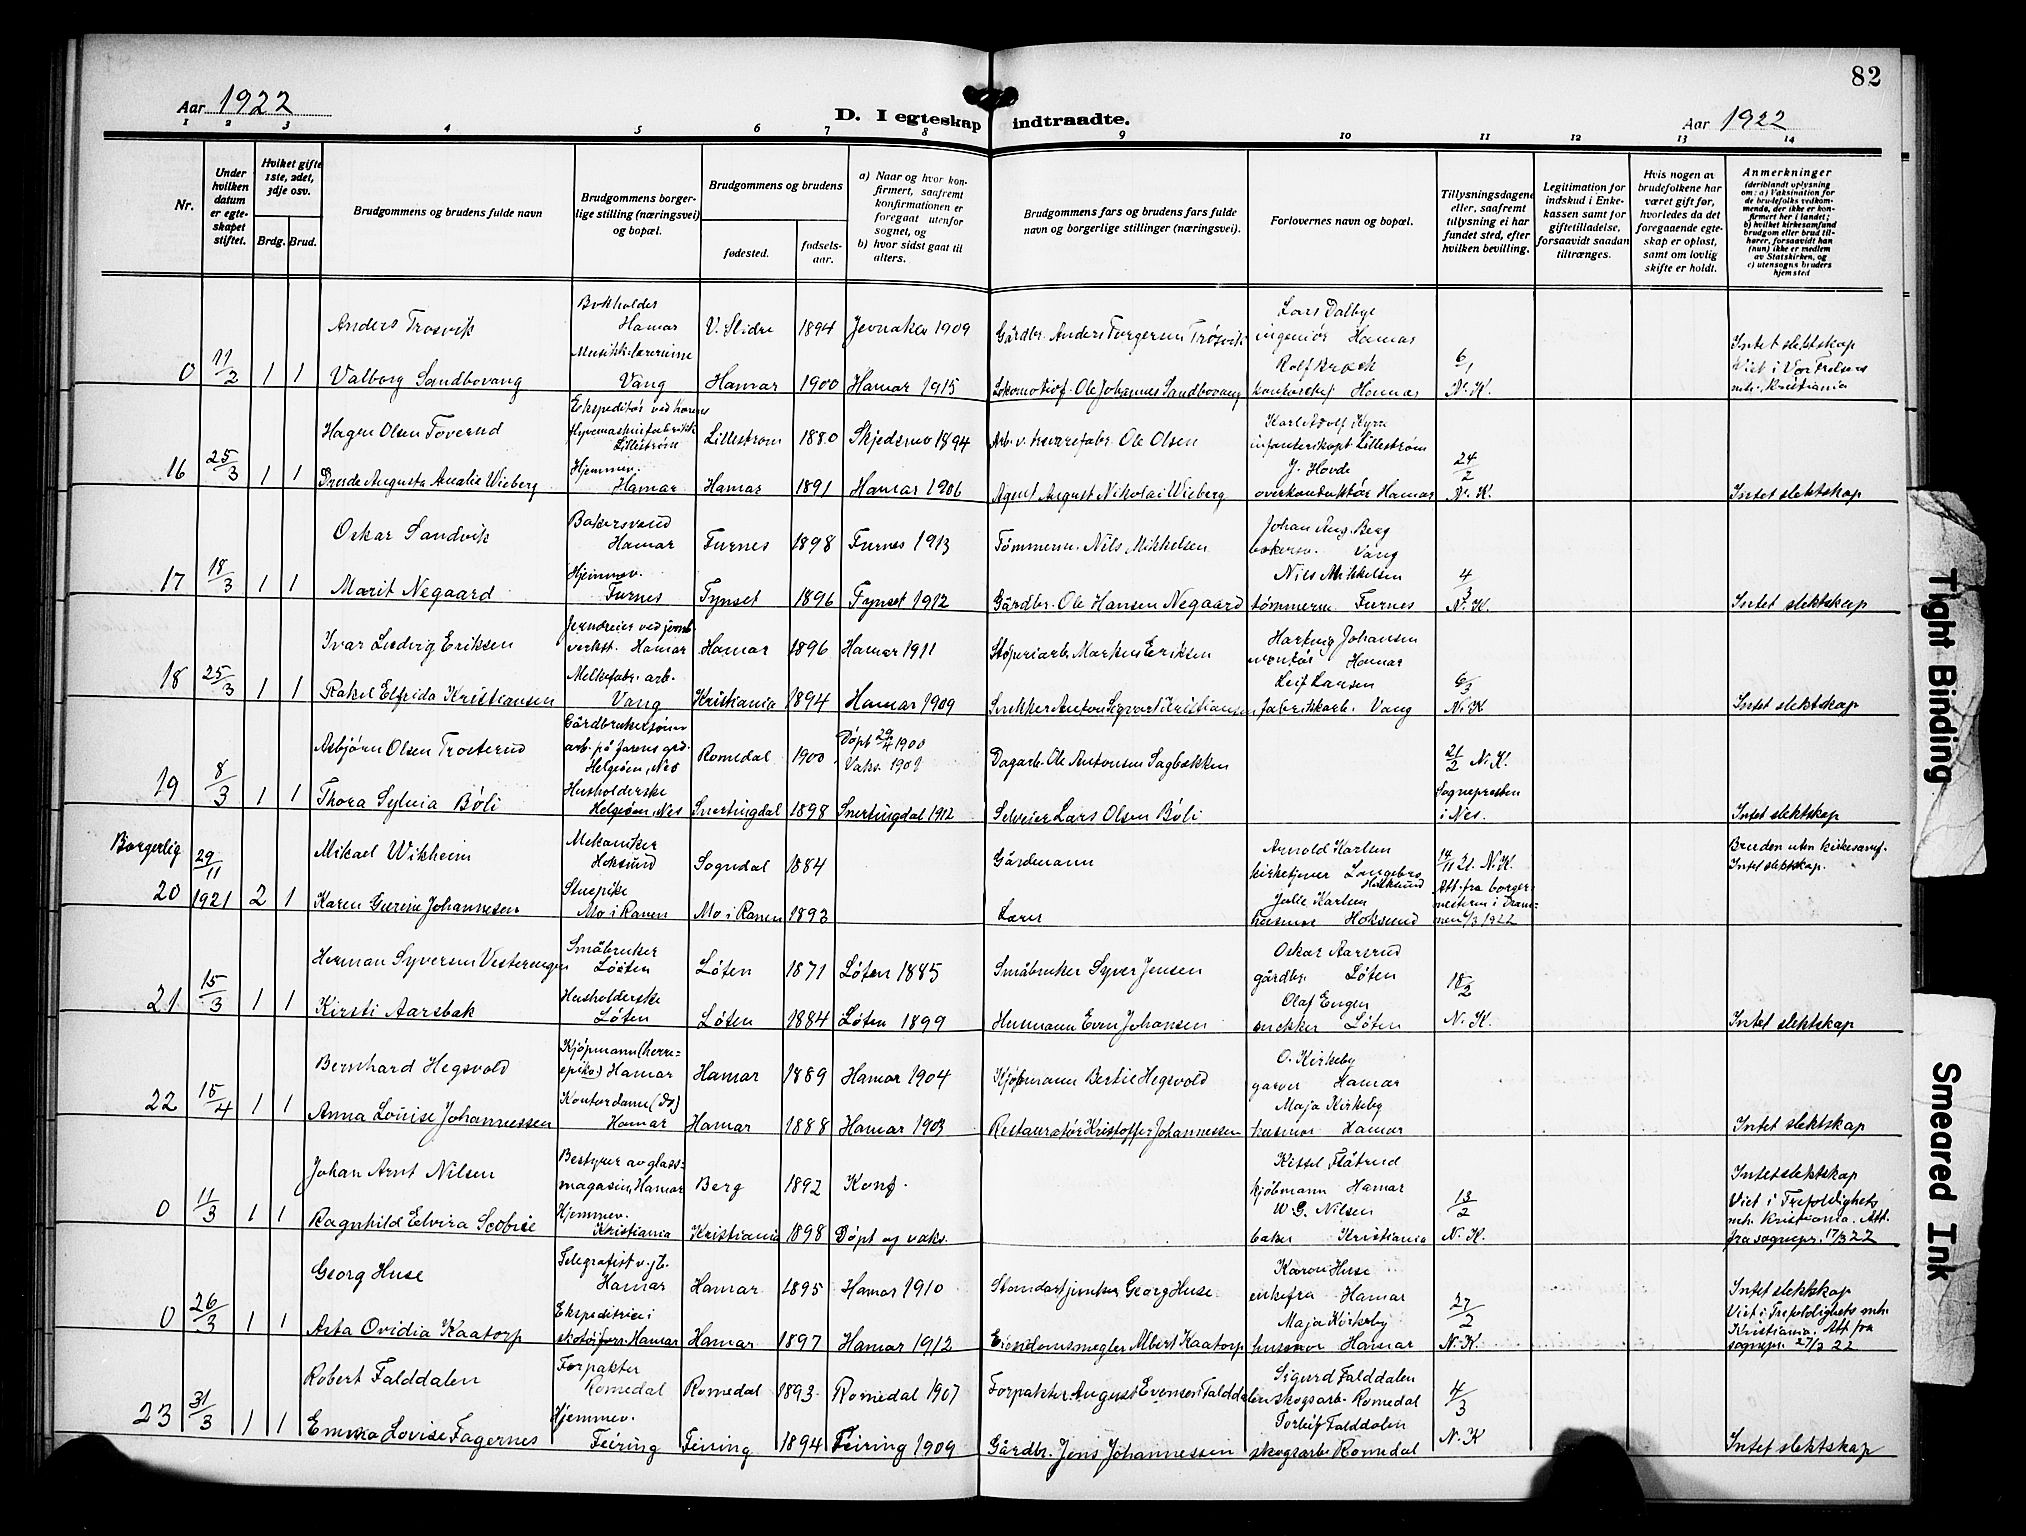 82
Aar 1922
D. I egteskap indtraadte.
Aar 1922
1 2 3 4 5 6 7 8 9 10 11 12 13 14
Nr.
Under hvilken datum er egteskapet stiftet.
Hvilket gifte 1ste, 2det, 3dje osv.
Brdg. Brud.
Brudgommens og brudens fulde navn
Brudgommens borgerlige stilling (næringsvei) og bopæl.
Brudgommens og brudens
fødested.
fødselsaar.
a) Naar og hvor konfirmert, saafremt konfirmationen er foregaat utenfor sognet, og
b) hvor sidst gaat til alters.
Brudgommens fars og brudens fars fulde navn og borgerlige stillinger (næringsvei).
Forlovernes navn og bopæl.
Tillysningsdagene eller, saafremt tillysning ei har fundet sted, efter hvilken bevilling.
Legitimation for indskud i Enkekassen samt for giftetilladelse, forsaavidt saadan tiltrænges.
Hvis nogen av brudefolkene har været gift før, hvorledes da det foregaaende egteskap er opløst, samt om lovlig skifte er holdt.
Anmerkninger
(deriblandt oplysning om: a) Vaksination for de brudefolks vedkommende, der ikke er konfirmert her i landet; b) hvilket kirkesamfund brudgom eller brud tilhører, forsaavidt han (hun) ikke er medlem av Statskirken, og c) utensogns bruders hjemsted
0 11/2 1 1
Anders Trøsvik
Bokholder Hamar V. Slidre 1894 Jevnaker 1909
Gårdbr. Anders Torgersen Trøsvik
Lars Dalbye ingeniør Hamar
Valborg Sandbovang
Musikklærerinne Vang Hamar 1900 Hamar 1915
Lokomotivf. Ole Johannes Sandbovang
Hamar
6/1 N. K.
Intet slektskap
Viet i Vor Frelsers
mh. Kristiania
16 25/3 1 1
Hagen Olsen Toverud
Ekspeditør ved
Lillestrøm Lillestrøm 1880 Skjedsmo 1894
Ole Olsen
Lillestrøm
Augusta Amalie Wieberg
Hjemmev. Hamar Hamar 1891 Hamar 1906
Agent August Nikolai Wieberg
J. Hovde overkonduktør Hamar
24/2 N. K.
Intet slektskap
17 18/3 1 1
Oskar Sandvik
Bakersvend Hamar Furnes 1898 Furnes 1913
Tømmerm. Nils Mikkelsen
Johan Aug. Berg bakersv. Vang
Marit Negaard
Hjemmev. Furnes Tynset 1896 Tynset 1912
Gårdbr. Ole Hansen Negaard
Nils Mikkelsen tømmerm Furnes
4/3 N. K.
Intet slektskap
18 25/3 1 1
Ivar Ludvig Eriksen
Jerndreier ved jernb. verkst. Hamar Hamar 1896 Hamar 1911
Støperiarb. Markus Eriksen
Hartvig Johansen montør Hamar
Rakel Elfrida Kristiansen
Melkefabr. arb. Vang Kristiania 1894 Hamar 1909
Snekker Anton Sigvart Kristiansen
Leif Larsen fabrikkarb. Vang
6/3 N. K
Intet slektskap
19 8/3 1 1
Asbjørn Olsen Trosterud
arb. på
Helgeøen, Nes Romedal 1900 Døpt 29/4 1900
Vaks. 1909
Dagarb. Ole Antonsen Sagbakken
21/2 N. K.
Thora Sylvia Bøli
Husholderske Helgeøen, Nes Snertingdal 1898 Snertingdal 1912
Selveier Lars Olsen Bøli
Sognepresten i Nes.
Intet slektskap
Borgerlig
20 29/11 1921 2 1
Mikael Wikheim
Mekaniker Hoksund Sogndal 1884
Gårdmann
Arnold Karlsen kirketjener Langebro Hokksund
14/11 21. N. K.
Bruden uten kirkesamf.
Intet slektskap.
Karen Gurine Johannesen
Stuepike Mo i Ranen Mo i Ranen 1893
Lærer
Julie Karlsen husmor Hoksund
Att. fra borgermesteren i Drammen 6/3 1922
21 15/3 1 1
Herman Syversen Vesterengen
Småbruker Løiten Løten 1871 Løten 1885
Småbruker Syver Jensen
Oskar Aarsrud gårdbr. Løten
Kirsti Aarsbak
Husholderske Løten Løten 1884 Løten 1899
Husmann Even Johansen
Olaf Engen snekker Løten
18/2 N. K.
Intet slektskap
22 15/4 1 1
Bernhard Hegsvold
Kjøpmann (herre-
Hamar Hamar 1889 Hamar 1904
Kjøbmann Bertie Hegsvold
O. Kirkeby garver Hamar
Anna Louise Johannessen
Kontordame (do) Hamar Hamar 1888 Hamar 1903
Restauratør Kristoffer Johannessen
Maja Kirkeby husmor Hamar
Intet slektskap
0 11/3 1 1
Johan Arnt Nilsen
Bestyrer av glassmagasin, Hamar Berg 1892 Konf.
Kittel Flåtrud kjøbmann Hamar
Ragnhild Elvira Scobie
Hjemmev. Kristiania Kristiania 1898 Døpt og vaks.
W. G. Nilsen baker Kristiania
13/2 N. K.
Intet slektskap
Viet i Trefoldighets
mh. Kristiania. Att.
fra sognepr. 17/3 22
0 26/3 1 1
Georg Huse
Telegrafist v. jb. Hamar Hamar 1895 Hamar 1910
Georg Huse
Karen Huse enkefru Hamar
Asta Ovidia Kaatorp
Ekspeditrise i skotøiforr. Hamar Hamar 1897 Hamar 1912
Eiendomsmegler Albert Kaatorp
Maja Kirkeby husmor Hamar
27/2 N. K.
Intet slektskap
Viet i Trefoldighets mh.
Kristiania. Att fra
sognepr. 27/3 22
23 31/3 1 1
Robert Falddalen
Forpakter Romedal Romedal 1893 Romedal 1907
Forpakter August Evensen Falddalen
Sigurd Falddalen skogsarb. Romedal
Emma Lovise Fagernes
Hjemmev. Feiring Feiring 1894 Feiring 1909
Gårdbr. Jens Johannessen
Torleif Falddalen skogsarb. Romedal
4/3 N. K
Intet slektskap
Tight Binding
Smeared Ink